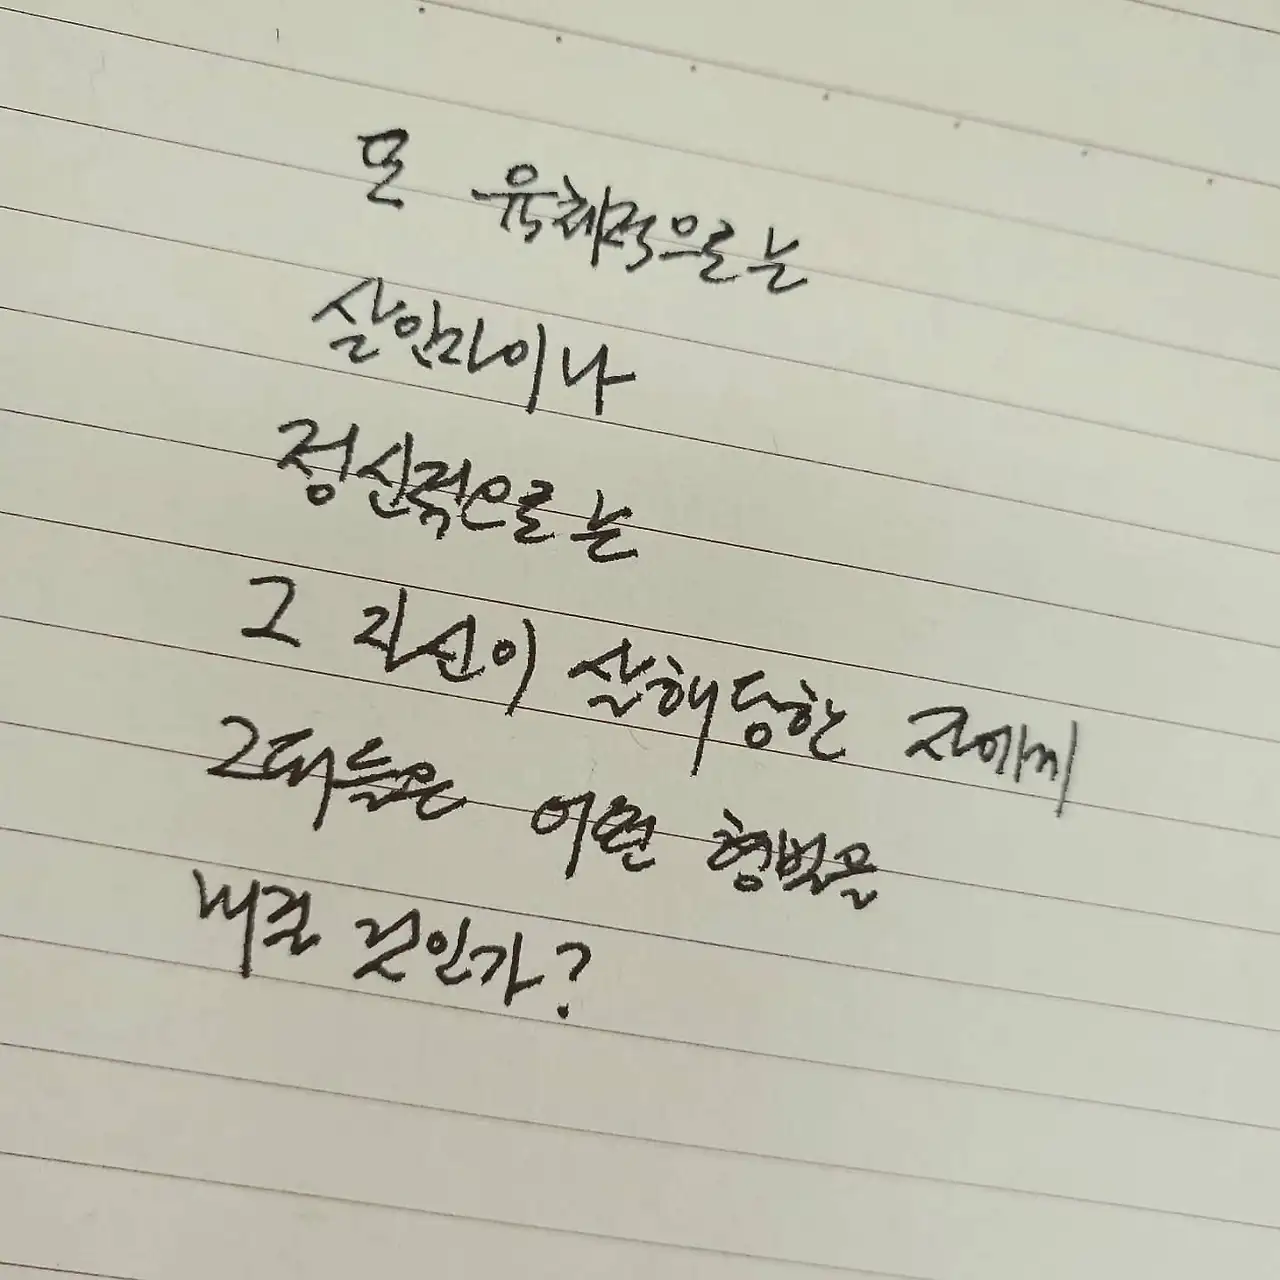 또 육체적으로는
살인마이나
정신적으로는
그 자신이 살해당한 자에게
그대들은 어떤 형벌을
내릴 것인가?